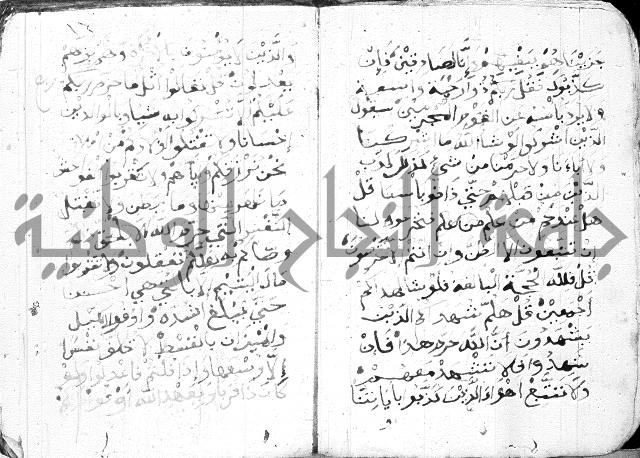 جزيناهم ببغيهم وإنا لصادقون فإن
كذبوك فقل ربكم ذو رحمة واسعة
ولا يرد بأسه عن القوم المجرمين سيقول
الذين أشركوا لو شاء الله ما أشركنا
ولا آباؤنا ولا حرمنا من شيء كذلك كذب
الذين من قبلهم حتى ذاقوا بأسنا قل
هل عندكم من علم فتخرجوه لنا
إن تتبعون إلا الظن وإن أنتم إلا تخرصون
قل فلله الحجة البالغة فلو شاء لهداكم
أجمعين قل هلم شهداءكم الذين
يشهدون أن الله حرم هذا فإن
شهدوا فلا تشهد معهم
ولا تتبع أهواء الذين كذبوا بآياتنا
والذين لا يؤمنون بالآخرة وهم بربهم
يعدلون قل تعالوا أتل ما حرم ربكم
عليكم ألا تشركوا به شيئا وبالوالدين
إحسانا ولا تقتلوا أولادكم من إملاق
نحن نرزقكم وإياهم ولا تقربوا الفواحش
ما ظهر منها وما بطن ولا تقتلوا
النفس التي حرم الله إلا بالحق
وصاكم به لعلكم تعقلون ولا تقربوا
مال اليتيم إلا بالتي هي أحسن
حتى يبلغ أشده وأوفوا الكيل
والميزان بالقسط لا نكلف نفسا
إلا وسعها وإذا قلتم فاعدلوا ولو
كان ذا قربى وبعهد الله أوفوا
جامعة النجاح الوطنية